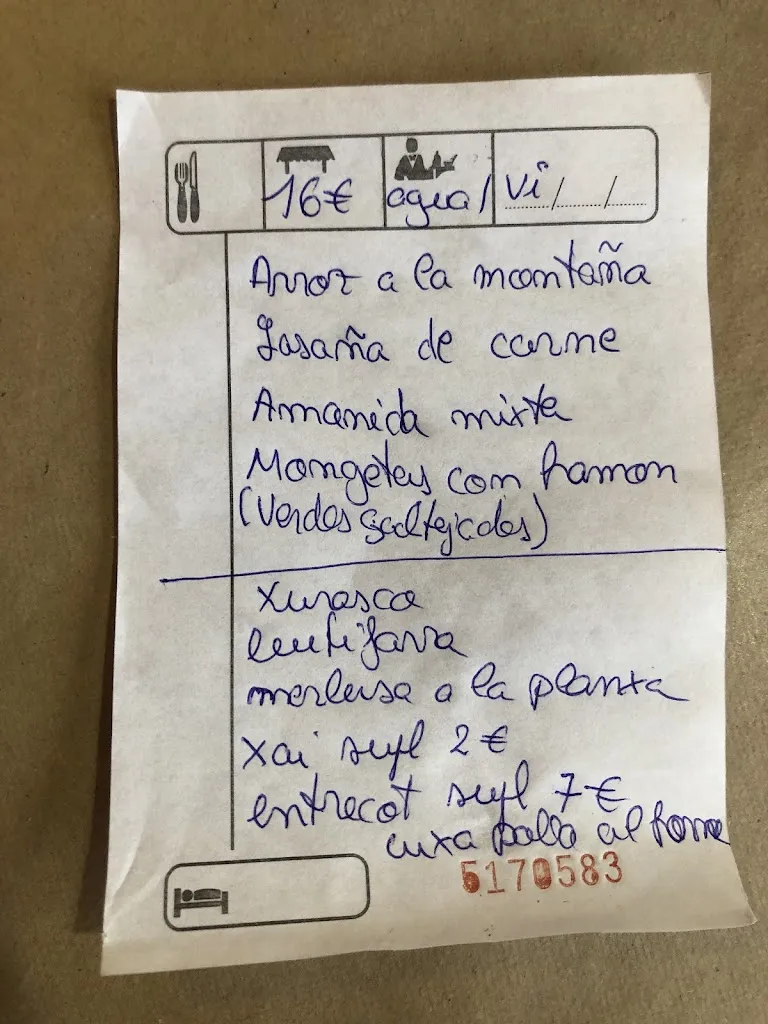 16€ agua/ vi / /
Arroz a la montaña
Lasaña de carne
Amanida mixta
Mongetes com hamon
(Verdes saltejades)
Xurasca
butifarra
merlusa a la planxa
Xai supl 2€
entrecot supl 7€
cuxa pollo al forno
5170583